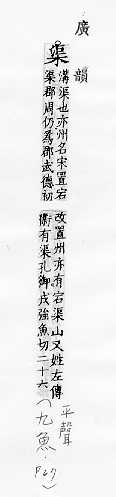 廣韻
渠
溝渠也亦州名宋置宕
渠郡周仍爲郡武德初
改置州亦有宕渠山又姓左傳
衞有渠孔御戎強魚切二十六
平聲
(九魚.
P27)